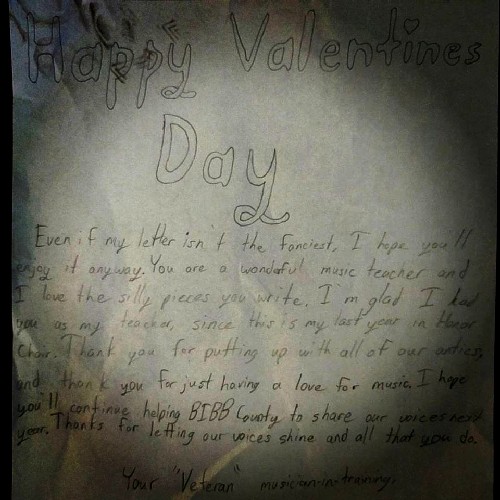 Happy Valentines
Day
Even if my letter isn't the fanciest, I hope you'll
enjoy it anyway. You are a wonderful music teacher and
I love the silly pieces you write. I'm glad I had
you as my teacher, since this is my last year in Honor
Choir. Thank you for putting up with all of our antics,
and thank you for just having a love for music. I hope
you'll continue helping BIBB County to share our voices next
year. Thanks for letting our voices shine and all that you do.
Your "Veteran" musician-in-training,